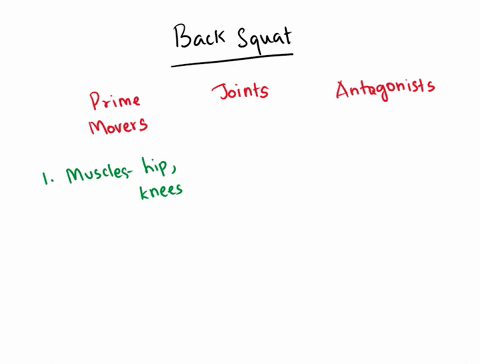 Back Squat
Prime Joints Antagonists
Movers
1. Muscles- hip,
knees